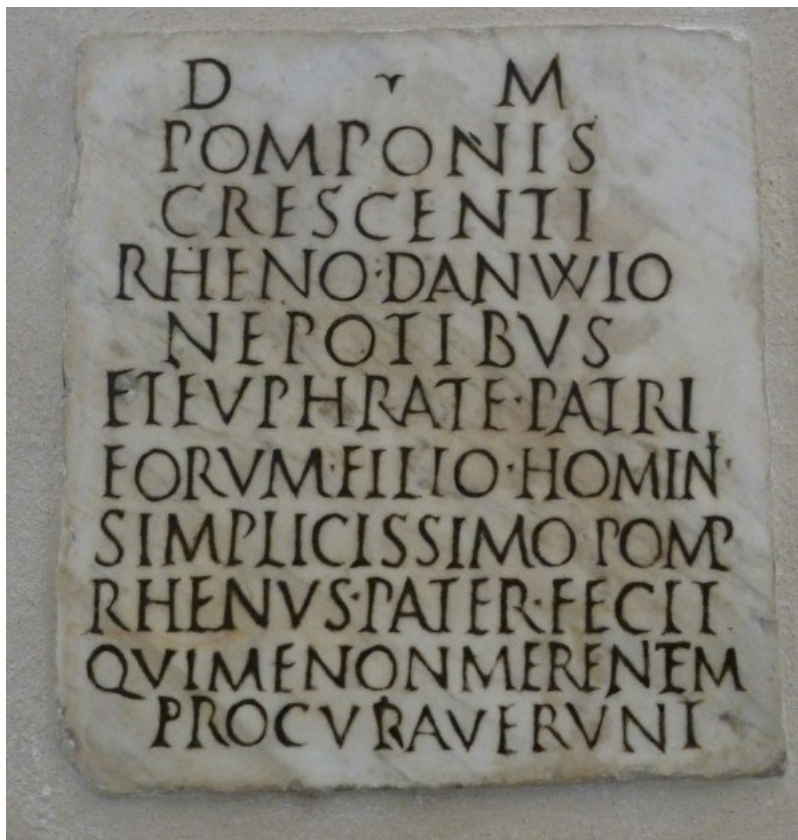 D M
POMPONIS
CRESCENTI
RHENO·DANVVIO
NEPOTIBVS
ETEVPHRATE·PATRI
EORVM·FILIO·HOMIN·
SIMPLICISSIMO POMP
RHENVS·PATER·FECIT
QVIMENONMERENTEM
PROCVRAVERVNT